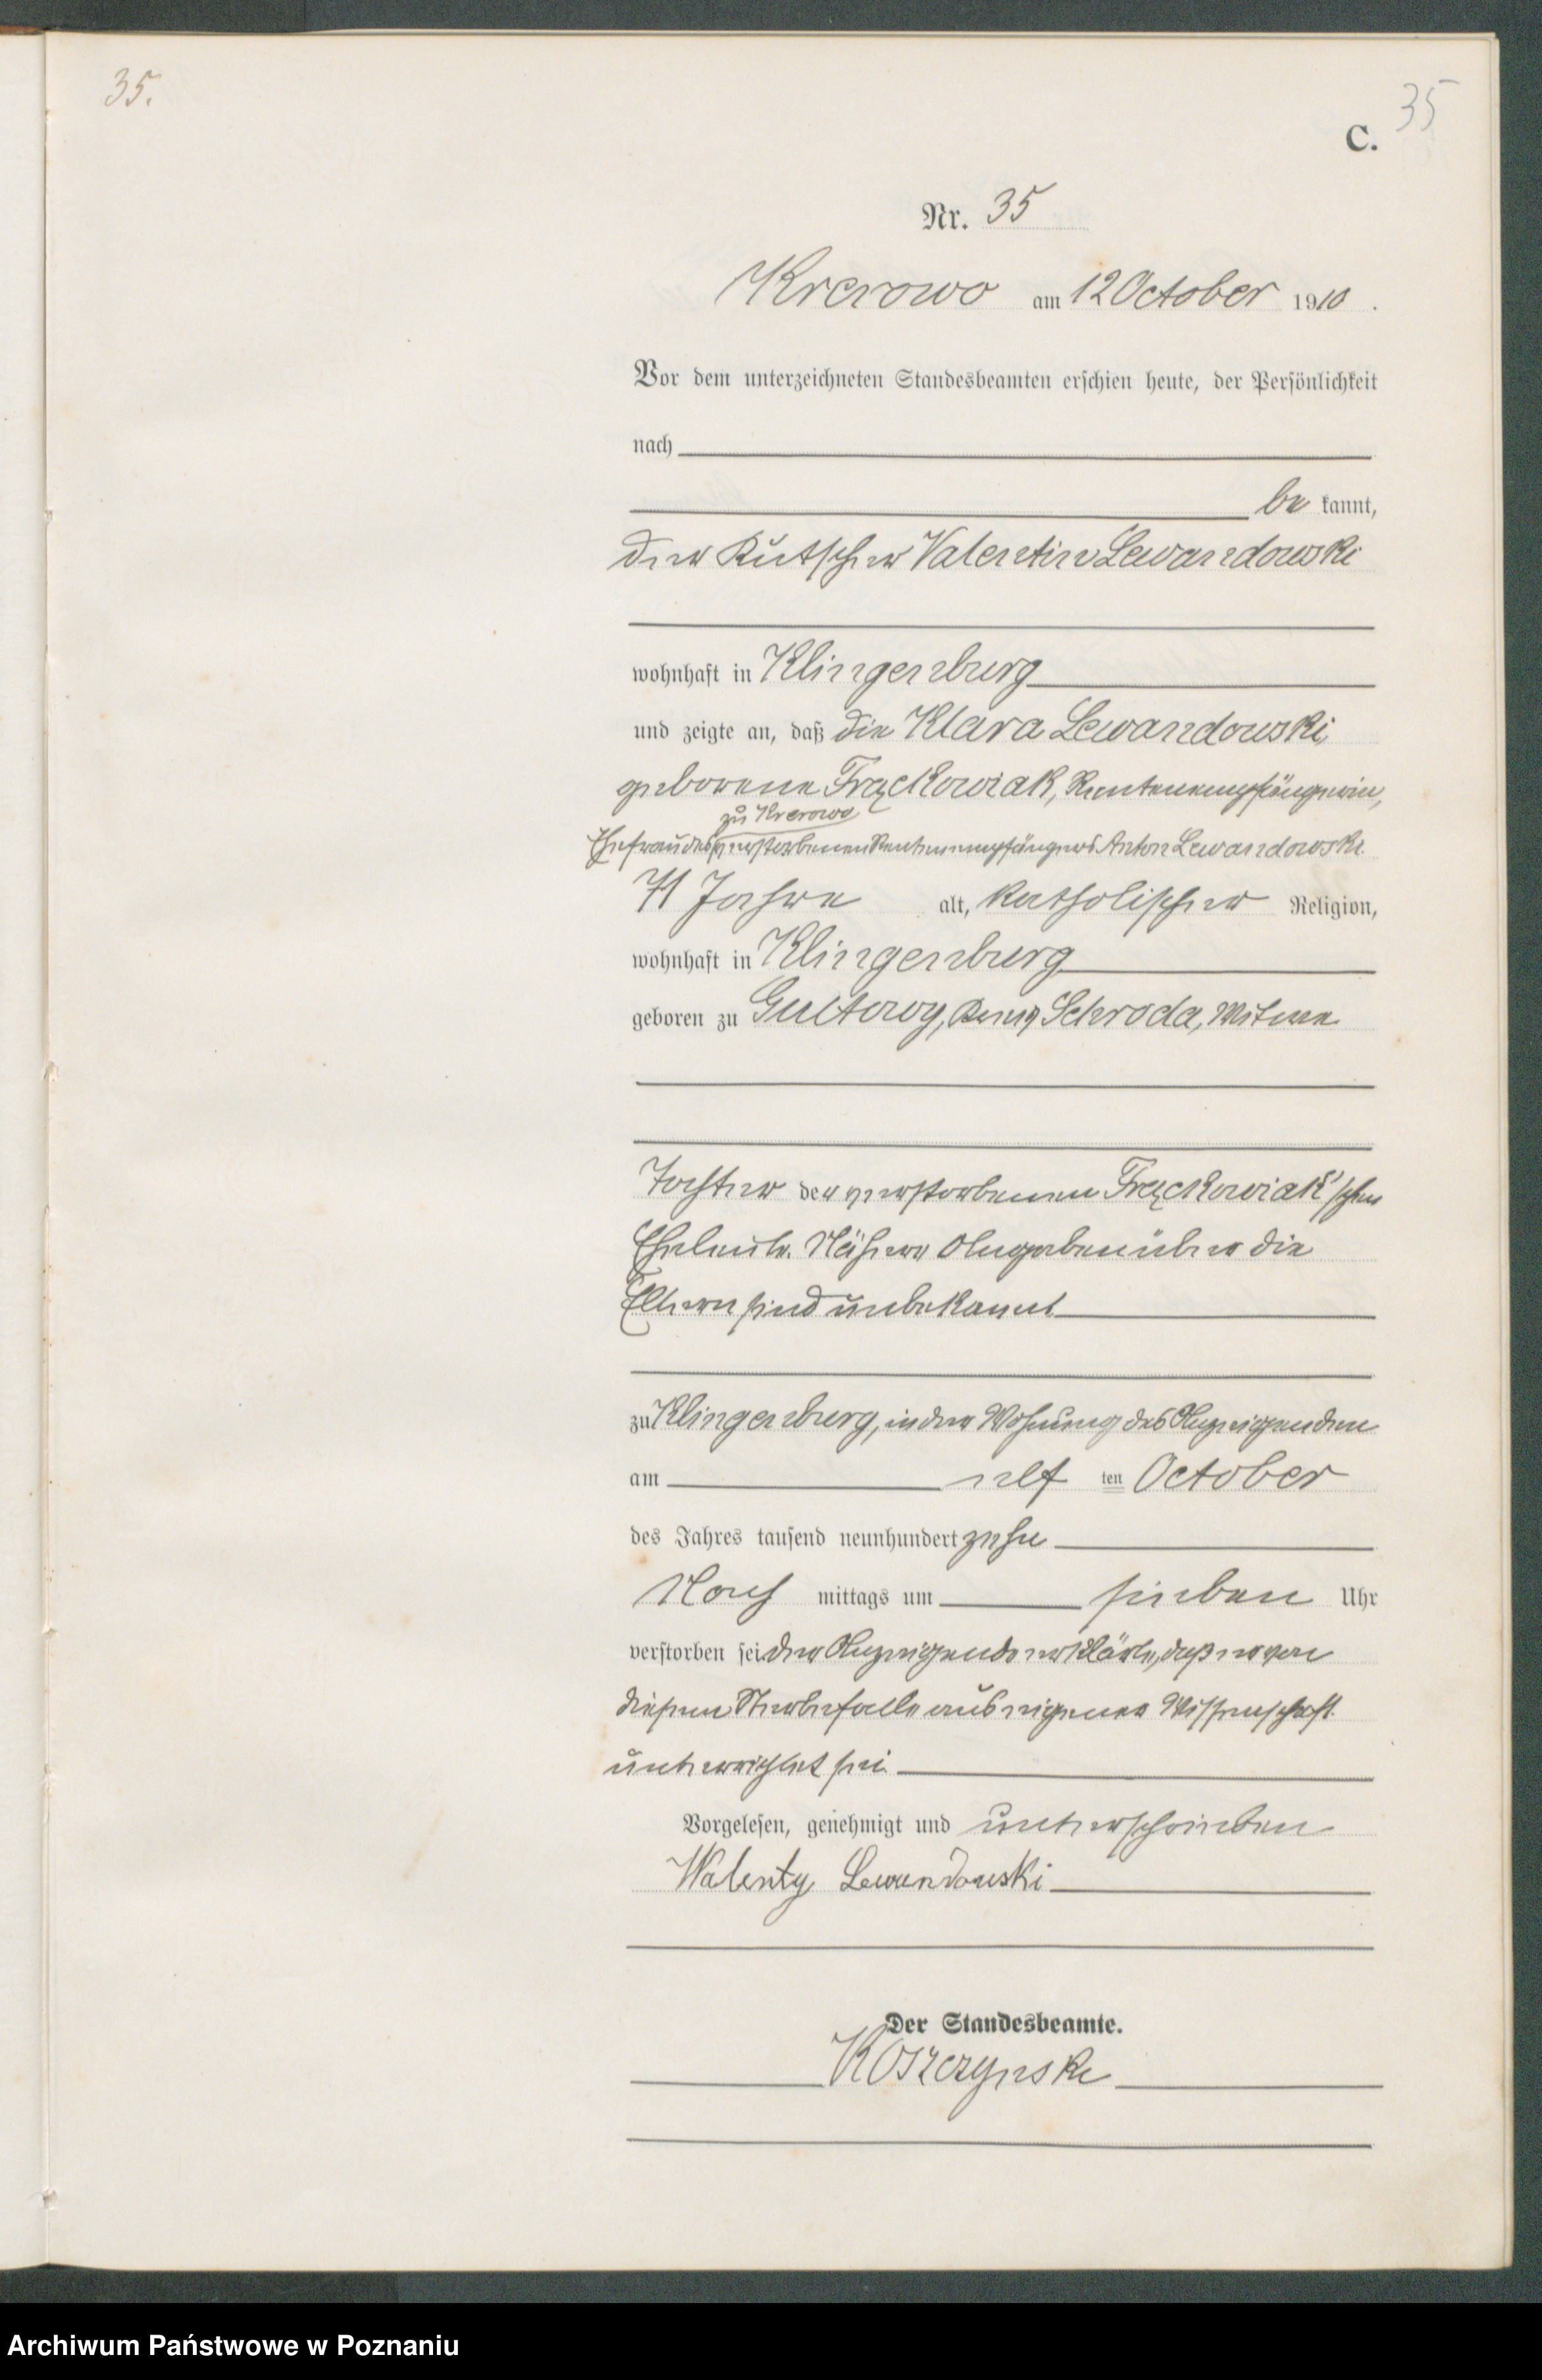 35.
35
C.
Nr. 35
Krerowo am 12 October 1910.
Vor dem unterzeichneten Standesbeamten erschien heute, der Persönlichkeit
nach
be kannt,
der Kutscher Valentin Lewandowski
wohnhaft in Klingenburg
und zeigte an, daß die Klara Lewandowski,
geborene Frąckowiak, Rentenempfängerin,
zu Krerowo
Ehefrau des verstorbenen Rentenempfängers Anton Lewandowski
71 Jahre alt, katholischer Religion,
wohnhaft in Klingenburg
geboren zu Gultowy, Kreis Schroda, Witwe
Tochter der verstorbenen Frąckowiak'schen
Eheleute. Nähere Angaben über die
Eltern sind unbekannt
zu Klingenburg, in der Wohnung des Anzeigenden
am elf ten October
des Jahres tausend neunhundert zehn
Nach mittags um sieben Uhr
verstorben sei. Der Anzeigende erklärte, daß er von
diesem Sterbefalle aus eigener Wissenschaft
unterrichtet sei
Vorgelesen, genehmigt und unterschrieben
Walenty Lewandowski
Der Standesbeamte.
Koszczynski
Archiwum Państwowe w Poznaniu